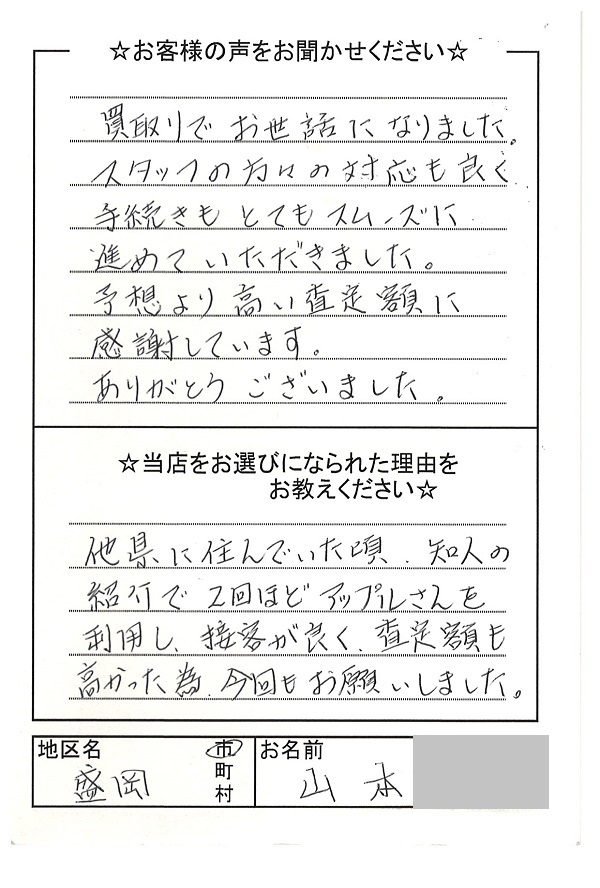 ☆お客様の声をお聞かせください☆
買取りでお世話になりました。
スタッフの方々の対応も良く
手続きもとてもスムーズに
進めていただきました。
予想より高い査定額に
感謝しています。
ありがとうございました。
☆当店をお選びになられた理由を
お教えください☆
他県に住んでいた頃、知人の
紹介で2回ほどアップルさんを
利用し、接客が良く、査定額も
高かった為、今回もお願いしました。
地区名
盛岡
市
町
村
お名前
山本